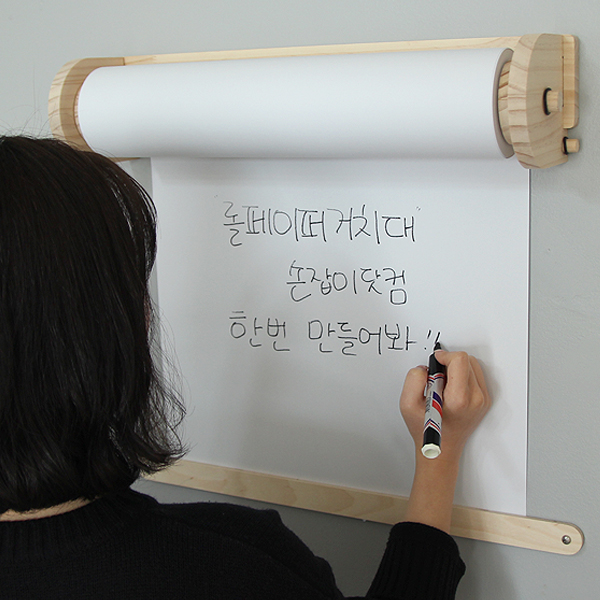 "롤페이퍼거치대"
손잡이닷컴
한번 만들어봐!!